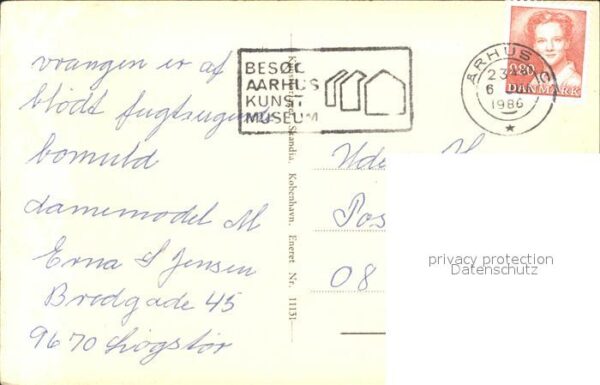 vrangen er af
blødt fugtsugende
bomuld
damemodel M
Erna S Jensen
Bredgade 45
9670 Løgstør
BESØG
AARHUS
KUNST
MUSEUM
Skandia. København. Eneret Nr. 11131
ARHUS C
23
6
1986
280
DANMARK
Ude
Pos
08
privacy protection
Datenschutz